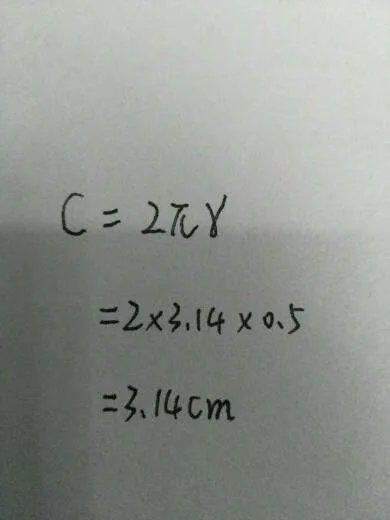 C = 2πr
=2×3.14×0.5
=3.14cm